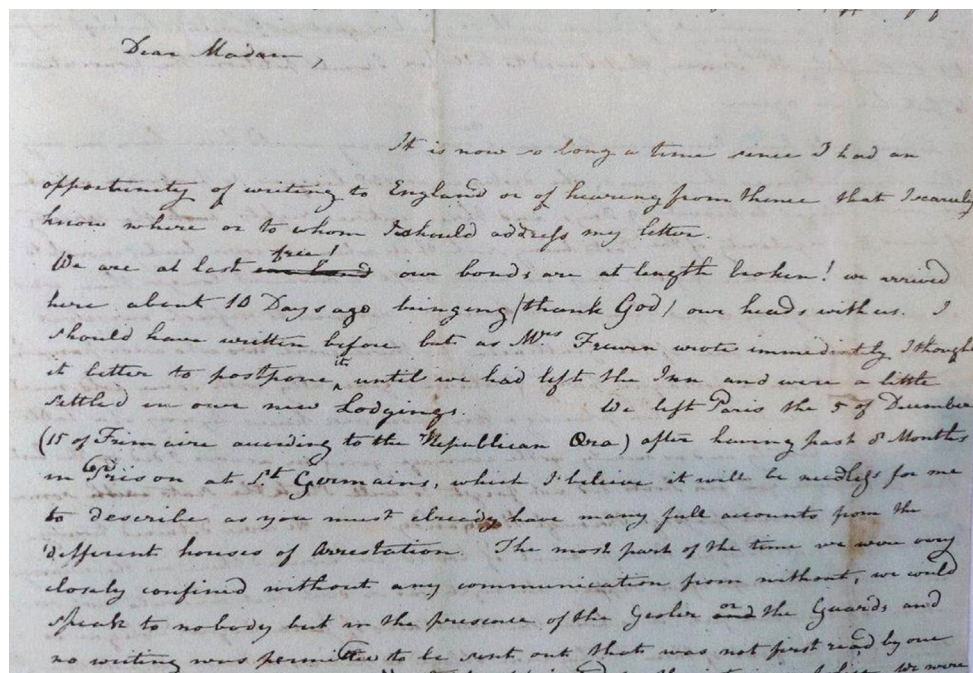 Dear Madam,
It is now so long a time since I had an
opportunity of writing to England or of hearing from thence that I scarcely
know where or to whom I should address my letter.
free!
We are at last our bonds are at length broken! we arrived
here about 10 Days ago bringing (thank God) our heads with us. I
should have written before but as Mrs Frewen wrote immediately I thought
it better to postpone it, until we had left the Inn and were a little
settled in our new Lodgings. We left Paris the 5 of December
(15 of Frimaire acording to the Republican Æra) after having past 8 Months
in Prison at St Germains, which I believe it will be needless for me
to describe as you must already have many full accounts from the
different houses of Arrestation. The most part of the time we were very
closely confined without any communication from without, we could
speak to nobody but in the presence of the Geoler or and the Guards and
no writing was permitted to be sent out that was not first read by one
we were